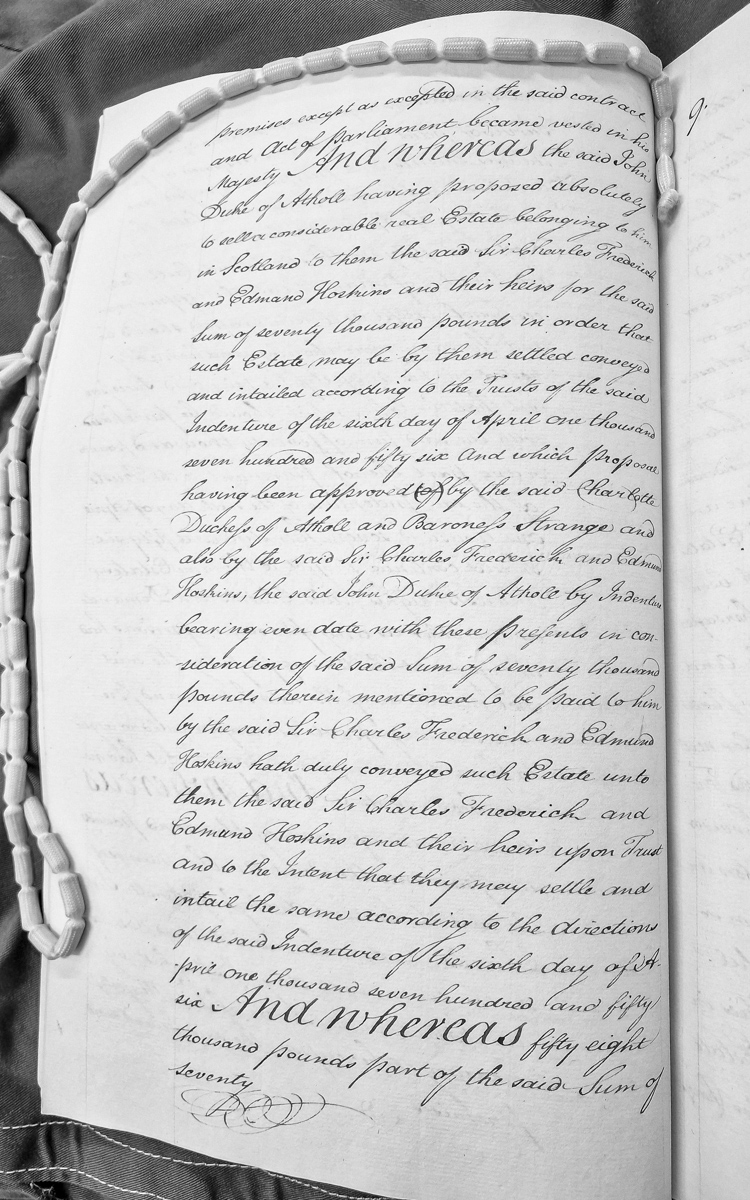 premises except as excepted in the said contract
and Act of Parliament became vested in his
Majesty And whereas the said John
Duke of Atholl having proposed absolutely
to sell a considerable real Estate belonging to him
in Scotland to them the said Sir Charles Frederick
and Edmund Hoskins and their heirs for the said
Sum of seventy thousand pounds in order that
such Estate may be by them settled conveyed
and intailed according to the Trusts of the said
Indenture of the sixth day of April one thousand
seven hundred and fifty six And which proposal
having been approved (of) by the said Charlotte
Duchess of Atholl and Baroness Strange and
also by the said Sir Charles Frederick and Edmund
Hoskins, the said John Duke of Atholl by Indenture
bearing even date with these presents in con-
sideration of the said Sum of seventy thousand
pounds therein mentioned to be paid to him
by the said Sir Charles Frederick and Edmund
Hoskins hath duly conveyed such Estate unto
them the said Sir Charles Frederick and
Edmund Hoskins and their heirs upon Trust
and to the Intent that they may settle and
intail the same according to the directions
of the said Indenture of the sixth day of A-
pril one thousand seven hundred and fifty
six And whereas fifty eight
thousand pounds part of the said Sum of
seventy